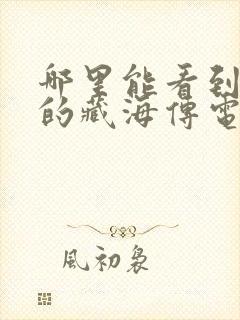 哪里能看到
的藏海傳電
風初裊